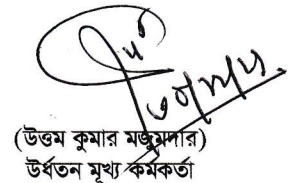 (উত্তম কুমার মজুমদার)
উর্ধতন মূখ্য কর্মকর্তা